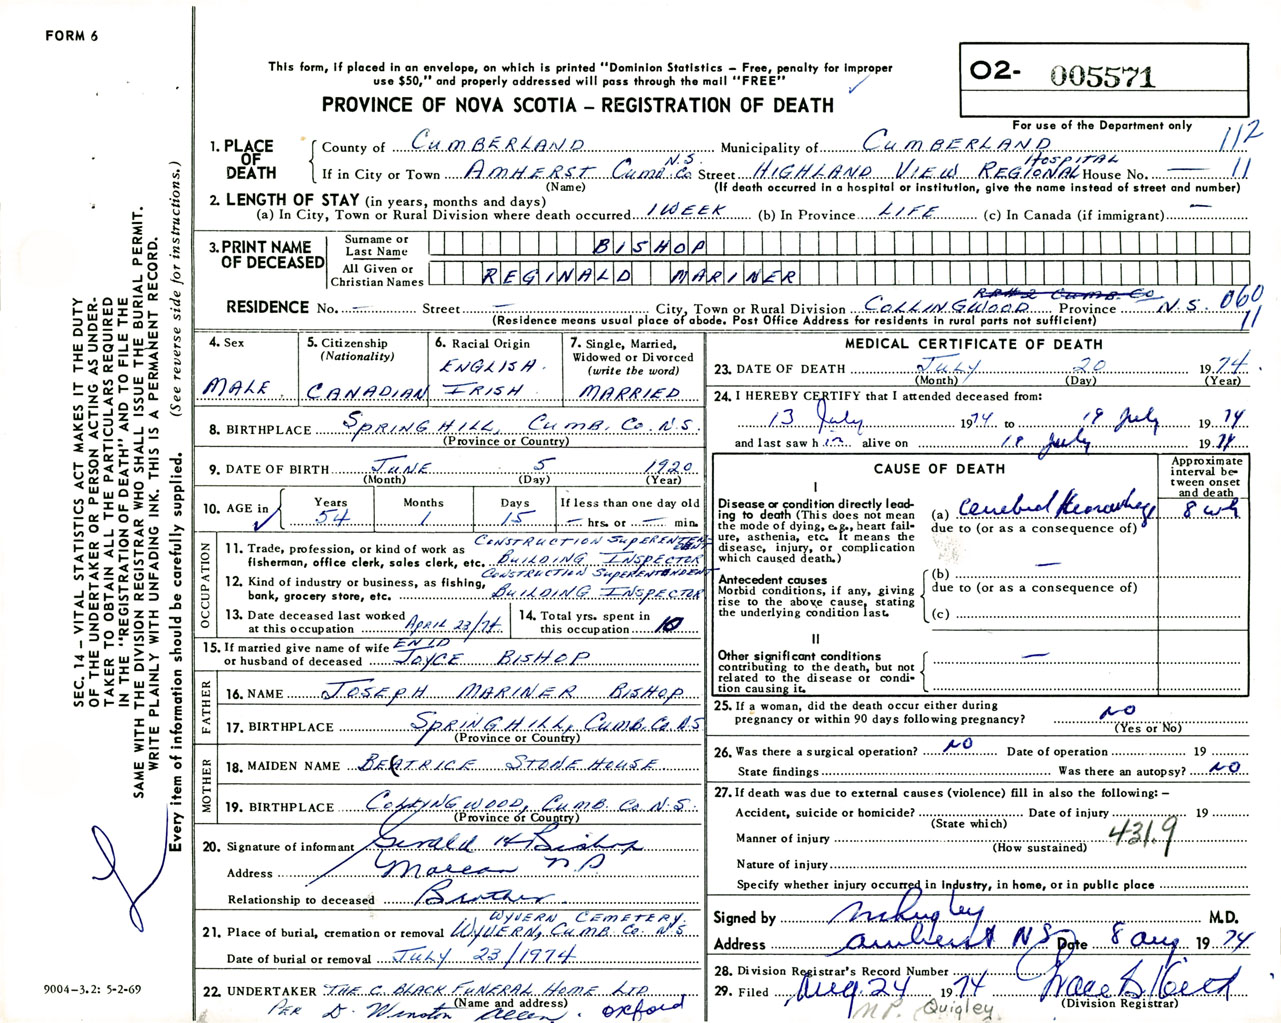 FORM 6
This form, if placed in an envelope, on which is printed "Dominion Statistics – Free, penalty for improper
use $50," and properly addressed will pass through the mail "FREE"
PROVINCE OF NOVA SCOTIA – REGISTRATION OF DEATH
O2- 005571
For use of the Department only
112
11
1. PLACE OF DEATH
County of CUMBERLAND Municipality of CUMBERLAND
If in City or Town AMHERST CUMB. CO N.S. Street HIGHLAND VIEW REGIONAL HOSPITAL House No. —
(Name) (If death occurred in a hospital or institution, give the name instead of street and number)
2. LENGTH OF STAY (in years, months and days)
(a) In City, Town or Rural Division where death occurred 1 WEEK (b) In Province LIFE (c) In Canada (if immigrant) —
3. PRINT NAME OF DECEASED
Surname or Last Name BISHOP
All Given or Christian Names REGINALD MARINER
RR#2 CUMB. CO
RESIDENCE No. — Street — City, Town or Rural Division COLLINGWOOD Province N.S. 060
(Residence means usual place of abode. Post Office Address for residents in rural parts not sufficient) 11
4. Sex
MALE
5. Citizenship
(Nationality)
CANADIAN
6. Racial Origin
ENGLISH
IRISH
7. Single, Married,
Widowed or Divorced
(write the word)
MARRIED
8. BIRTHPLACE SPRINGHILL, CUMB. CO. N.S.
(Province or Country)
9. DATE OF BIRTH JUNE 5 1920
(Month) (Day) (Year)
10. AGE in Years Months Days If less than one day old
54 1 15 — hrs. or — min.
OCCUPATION
11. Trade, profession, or kind of work as
fisherman, office clerk, sales clerk, etc. CONSTRUCTION SUPERENTENDENT
BUILDING INSPECTOR
12. Kind of industry or business, as fishing,
bank, grocery store, etc. CONSTRUCTION SUPERENTENDENT
BUILDING INSPECTOR
13. Date deceased last worked
at this occupation APRIL 23/74
14. Total yrs. spent in
this occupation 10
15. If married give name of wife
or husband of deceased ENID JOYCE BISHOP
FATHER
16. NAME JOSEPH MARINER BISHOP
17. BIRTHPLACE SPRINGHILL, CUMB. CO. N.S
(Province or Country)
MOTHER
18. MAIDEN NAME BEATRICE STONEHOUSE
19. BIRTHPLACE COLLINGWOOD, CUMB. CO. N.S.
(Province or Country)
20. Signature of informant Gerald H Bishop
Address
Relationship to deceased Brother
21. Place of burial, cremation or removal WYVERN CEMETERY
WYVERN, CUMB. CO. N.S
Date of burial or removal JULY 23/1974
22. UNDERTAKER THE C. BLACK FUNERAL HOME LTD
(Name and address)
PER D. Winston Allen. oxford
MEDICAL CERTIFICATE OF DEATH
23. DATE OF DEATH JULY 20 1974.
(Month) (Day) (Year)
24. I HEREBY CERTIFY that I attended deceased from:
13 July 1974 to 18 July 1974
and last saw him alive on 18 July 1974
CAUSE OF DEATH
Approximate interval between onset and death
I
Disease or condition directly leading to death (This does not mean the mode of dying, e.g., heart failure, asthenia, etc. It means the disease, injury, or complication which caused death.)
(a) Cerebral Hemorrhage 8 wk
due to (or as a consequence of)
Antecedent causes
Morbid conditions, if any, giving rise to the above cause, stating the underlying condition last.
(b) —
due to (or as a consequence of)
(c)
II
Other significant conditions
contributing to the death, but not related to the disease or condition causing it. —
25. If a woman, did the death occur either during
pregnancy or within 90 days following pregnancy? NO
(Yes or No)
26. Was there a surgical operation? NO Date of operation 19
State findings Was there an autopsy? NO
27. If death was due to external causes (violence) fill in also the following: –
Accident, suicide or homicide? Date of injury 19
(State which)
Manner of injury 431.9
(How sustained)
Nature of injury
Specify whether injury occurred in Industry, in home, or in public place
Signed by M.D.
Address Amherst NS Date 8 Aug 1974
28. Division Registrar's Record Number
29. Filed Aug 24 1974
(Division Registrar)
Quigley
SEC. 14 – VITAL STATISTICS ACT MAKES IT THE DUTY
OF THE UNDERTAKER OR PERSON ACTING AS UNDER-
TAKER TO OBTAIN ALL THE PARTICULARS REQUIRED
IN THE "REGISTRATION OF DEATH" AND TO FILE THE
SAME WITH THE DIVISION REGISTRAR WHO SHALL ISSUE THE BURIAL PERMIT.
WRITE PLAINLY WITH UNFADING INK. THIS IS A PERMANENT RECORD.
Every item of information should be carefully supplied. (See reverse side for instructions.)
9004-3.2: 5-2-69